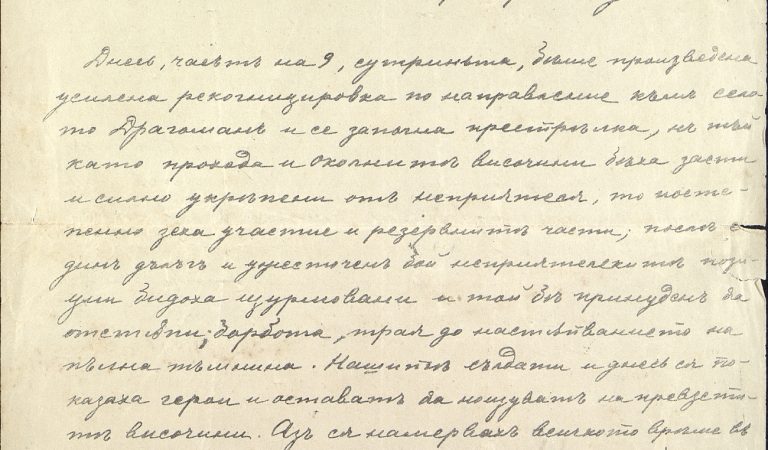 Днесь, часътъ на 9, сутриньта, бѣше произведена
усилена рекогницировка по направление къмъ село-
то Драгоманъ и се започна престрѣлка, нъ тъй
като прохода и околнитѣ височини бѣха заети
и силно укрѣпени отъ неприятеля, то посте-
пенно зеха участие и резервнитѣ части; послѣ е-
динъ дълъгъ и ужесточенъ бой неприятелскитѣ пози-
ции бидоха щурмовани и той бѣ принуденъ да
отстѫпи; борбота, трая до настѫпванието на
пълна тъмнина. Нашитѣ съдати и днесь сѫ по-
казаха герои и оставатъ да нощуватъ на превзети-
тѣ височини. Азъ сѫ намервахъ всичкото време въ